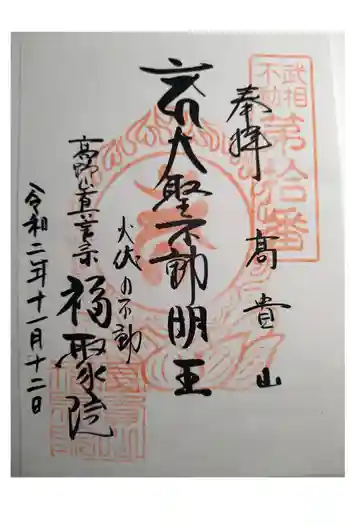 武相
不動
第拾番
奉拝
高貴山
大聖不動明王
火伏の不動
高野山真言宗
福聚院
令和二年十一月十二日